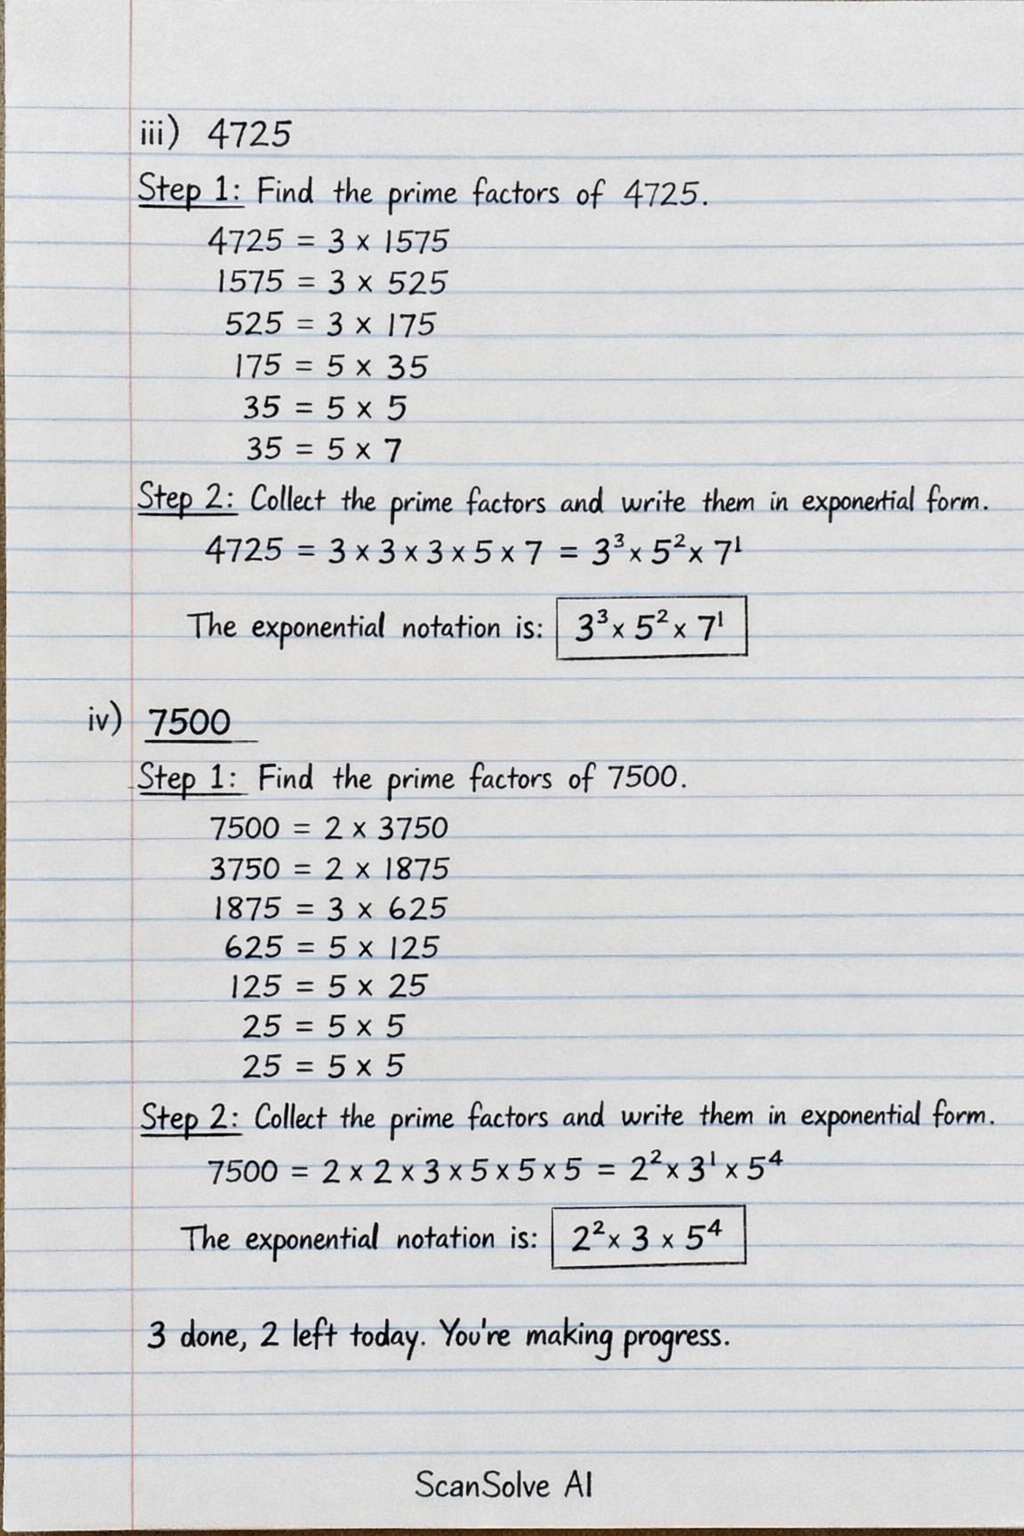 iii) 4725
Step 1: Find the prime factors of 4725.
4725 = 3 x 1575
1575 = 3 x 525
525 = 3 x 175
175 = 5 x 35
35 = 5 x 5
35 = 5 x 7
Step 2: Collect the prime factors and write them in exponential form.
4725 = 3 x 3 x 3 x 5 x 7 = 3³ x 5² x 7¹
The exponential notation is: 3³ x 5² x 7¹
iv) 7500
Step 1: Find the prime factors of 7500.
7500 = 2 x 3750
3750 = 2 x 1875
1875 = 3 x 625
625 = 5 x 125
125 = 5 x 25
25 = 5 x 5
25 = 5 x 5
Step 2: Collect the prime factors and write them in exponential form.
7500 = 2 x 2 x 3 x 5 x 5 x 5 = 2² x 3¹ x 5⁴
The exponential notation is: 2² x 3 x 5⁴
3 done, 2 left today. You're making progress.
ScanSolve AI